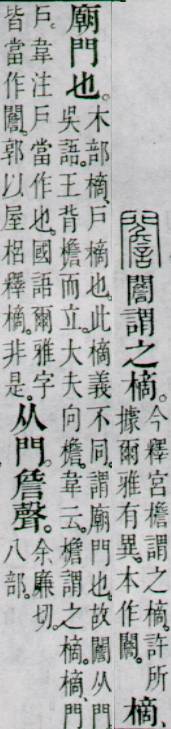 謂之樀。
今釋宮檐謂之樀。許所
據爾雅有異本作。
樀、
廟門也。
木部樀、戶樀也。此樀義不同。謂廟門也。故从門。
吳語。王背檐而立。大夫向檐。韋云。檐謂之樀。樀、門
戶。韋注戶當作也。國語爾雅字
皆當作。郭以屋梠釋樀。非是。
从門。詹聲。
余廉切。
八部。